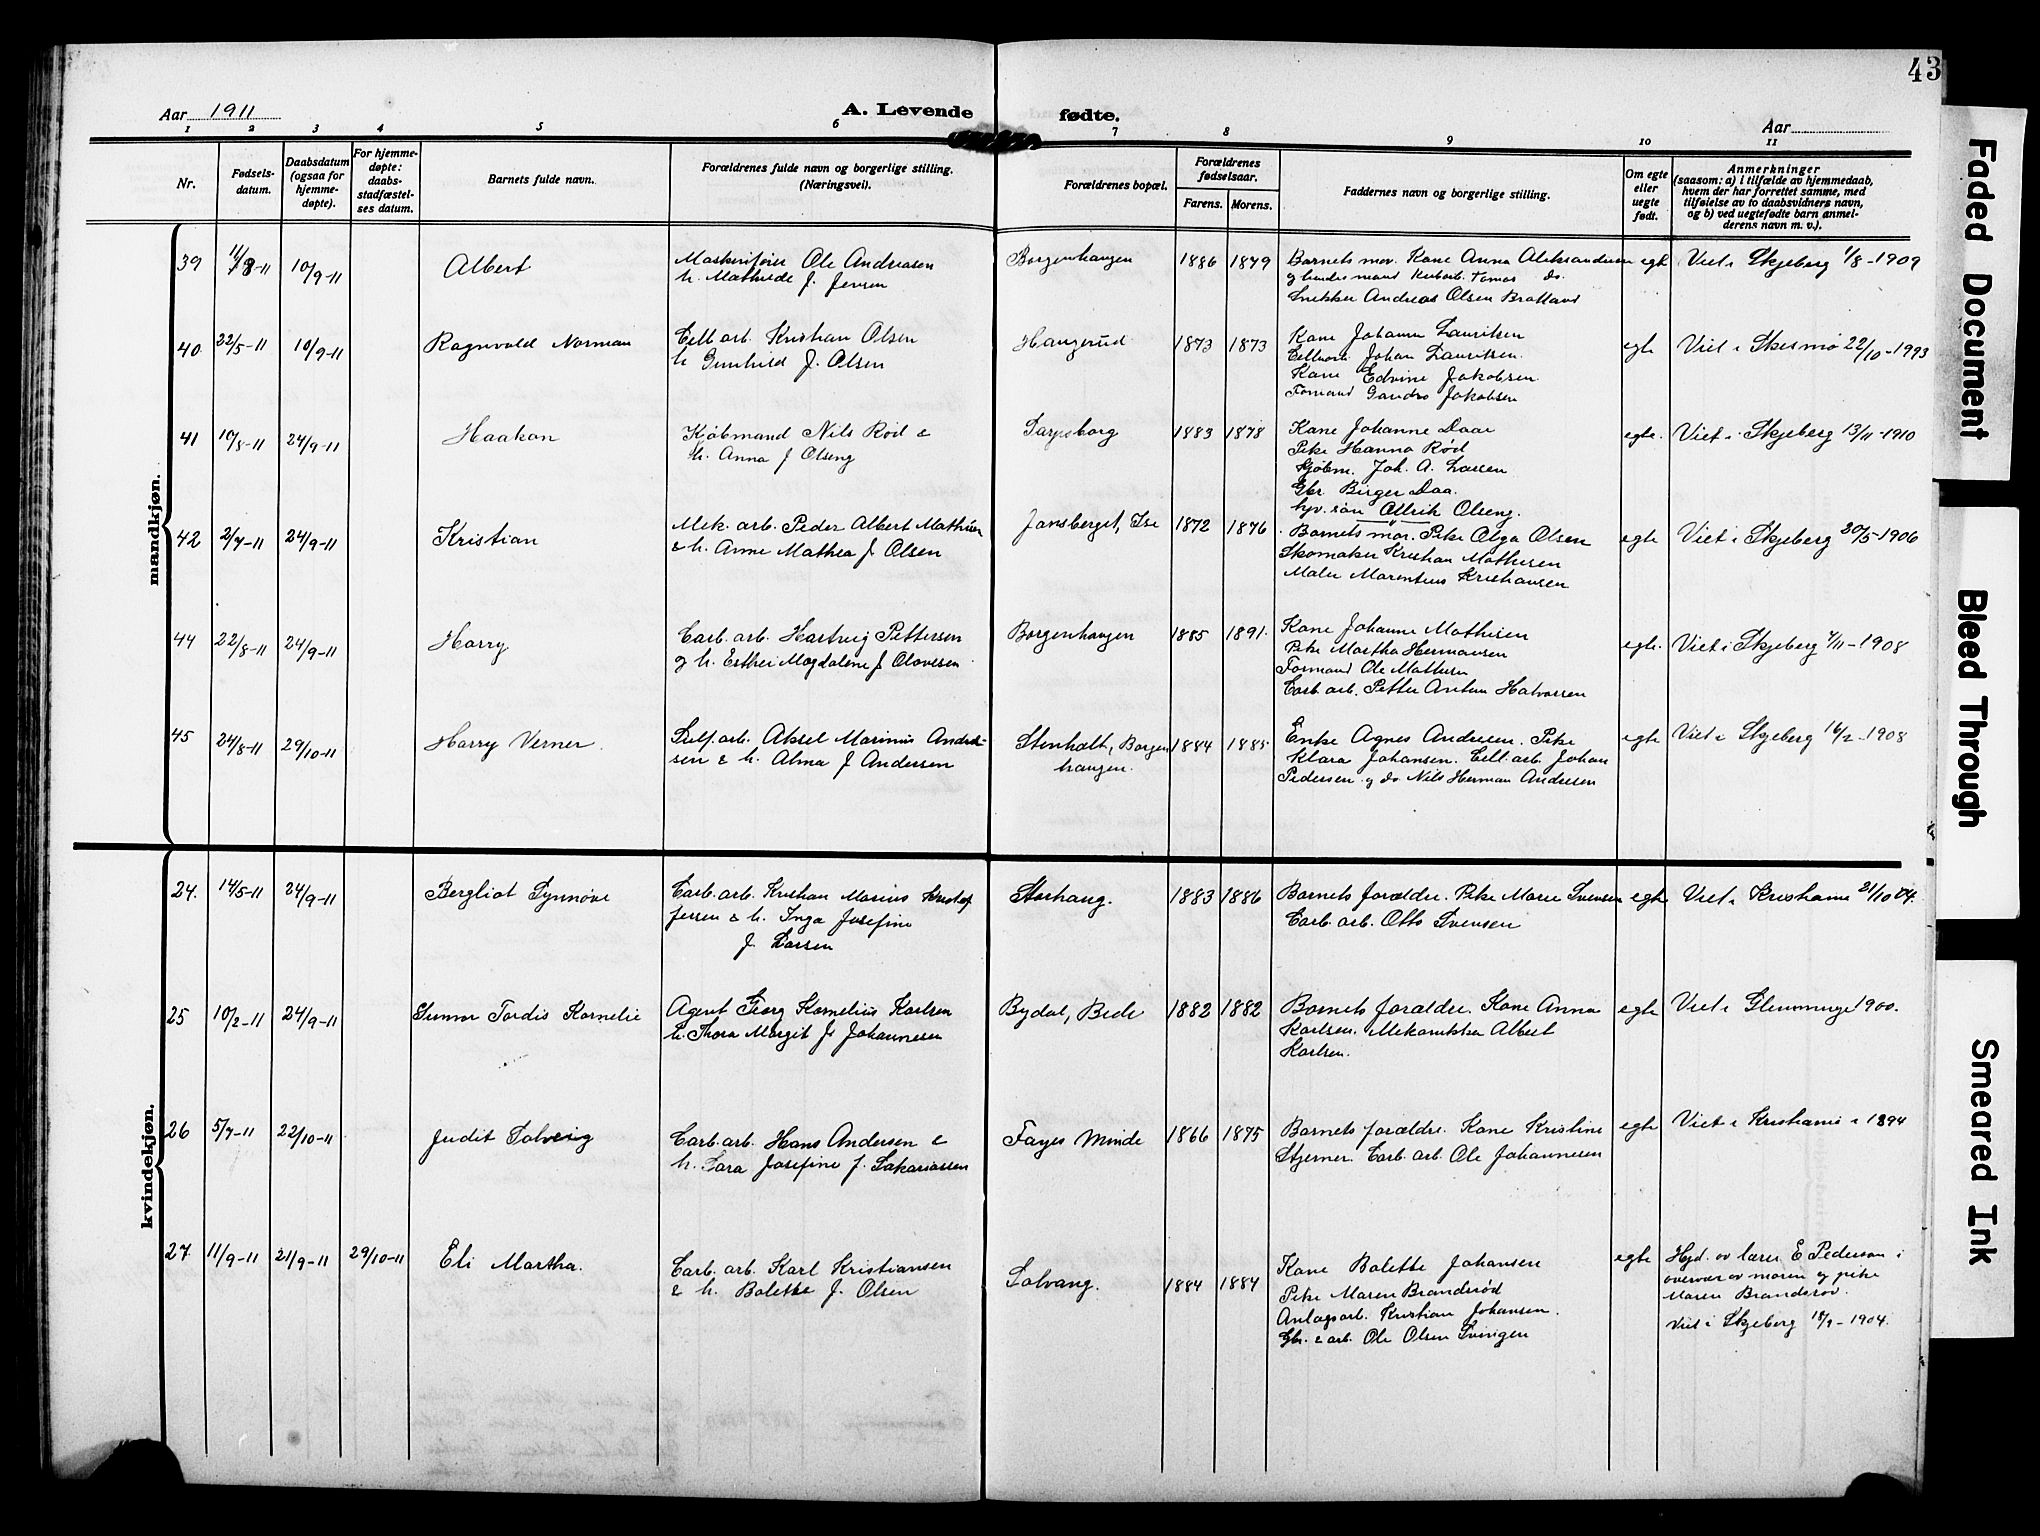 43
Aar 1911
A. Levende fødte.
Aar
1 2 3 4 5 6 7 8 9 10 11
Nr.
Fødsels-
datum.
Daabsdatum
(ogsaa for
hjemme-
døpte).
For hjemme-
døpte:
daabs-
stadfæstel-
ses datum.
Barnets fulde navn.
Forældrenes fulde navn og borgerlige stilling.
(Næringsvei).
Forældrenes bopæl.
Forældrenes
fødselsaar.
Farens. Morens.
Faddernes navn og borgerlige stilling.
Om egte
eller
uegte
født.
Anmerkninger
(saasom: a) i tilfælde av hjemmedaab,
hvem der har forrettet samme, med
tilføielse av to daabsvidners navn,
og b) ved uegtefødte barn anmel-
derens navn m. v.).
mandkjøn.
39 10/9-11 Albert
Ole Andreasen
h. Mathilde J. Jensen
Borgenhaugen 1886 1879
Barnets mor. Kone Anna Aleksandersen
Snekker Andreas Olsen Bratland
egte Viet i Skjeberg 1/8-1909
40 22/5-11 10/9-11 Ragnvald Norman
Cell arb. Kristian Olsen
h. Gunhild J. Olsen
Haugerud 1873 1873
Kone Johanne Lauritsen
Johan Lauritsen.
Kone Edvine Jakobsen
Formand Jakobsen
egte Viet i 22/10-1993
41 10/8-11 24/9-11 Haakon
Kjøbmand Nils Rød &
h. Anna J Olseng
Sarpsborg 1883 1878
Kone Johanne Daae
Pike Hanna Rød
Kjøbm. Joh. A. Larsen
Gbr Birger Daa.
søn Olseng.
egte. Viet i Skjeberg 13/11-1910
42 2/7-11 24/9-11 Kristian
Mek. arb. Peder Albert Mathisen
& h. Anne Mathea J. Olsen
Jonsberget, Ise 1872 1876
Barnets mor. Pike Olga Olsen
Skomaker Kristian Mathisen
Maler Marentius Kristiansen
egte Viet i Skjeberg 20/5-1906
44 22/8-11 24/9-11 Harry
Carb. arb. Hartvig Pettersen
og h. Esther Magdalene J Olavesen
Borgenhaugen 1885 1891.
Kone Johanne Mathisen
Pike Martha Hermansen
Formand Ole Mathisen
Carb. arb. Petter Anton Halvorsen
egte. Viet i Skjeberg 7/11-1908
45 24/8-11 29/10-11 Harry Verner.
Sulf. arb. Aksel Marinius Ander-
sen & h. Alma J Andersen
Stenholt, Borgen
haugen. 1884 1885
Enke Agnes Andresen. Pike
Klara Johansen. Cell. arb. Johan
Pedersen og do Nils Herman Andresen
egte Viet i Skjeberg 16/2-1908
kvindekjøn.
24. 14/5-11 24/9-11 Bergliot Synnøve
Carb. arb. Kristian Marius Kristof
fersen & h. Inga Josefine
J. Larsen
Storhaug. 1883 1886
Barnets forældre. Pike Marie Svensen
Carb. arb. Otto Svensen
egte Viet i Kristiania 21/10 04.
25 10/2-11 24/9-11 Gunvor Tordis Kornelie
Agent Georg Kornelius Karlsen
h. Thora Margit J. Johannesen
Bydal, Bede 1882 1882
Barnets forældre. Kone Anna
Karlsen. Mekanikker Albert
Karlsen.
egte Viet i Glemminge 1900.
26 5/7-11 22/10-11 Judit Solveig
Carb. arb. Hans Andersen &
h. Sara Josefine J. Sakariassen
Fayes Minde 1866 1875
Barnets forældre. Kone Kristine
Stjerner. Carb. arb. Ole Johannesen
egte Viet i Kristiania i 1894
27. 11/9-11 21/9-11 29/10-11 Eli Martha.
Carb. arb. Karl Kristiansen
& h. Bolette J. Olsen
Solvang. 1884 1884
Kone Bolette Johansen
Pike Maren Brandsrød
Anlagsarb. Kristian Johansen.
Gbr. & arb. Ole Olsen Svingen
egte Hjd. av lærer E Pedersen i
overvær av moren og pike
Maren Brandsrød.
Viet i Skjeberg 18/9-1904.
Faded Document
Bleed Through
Smeared Ink